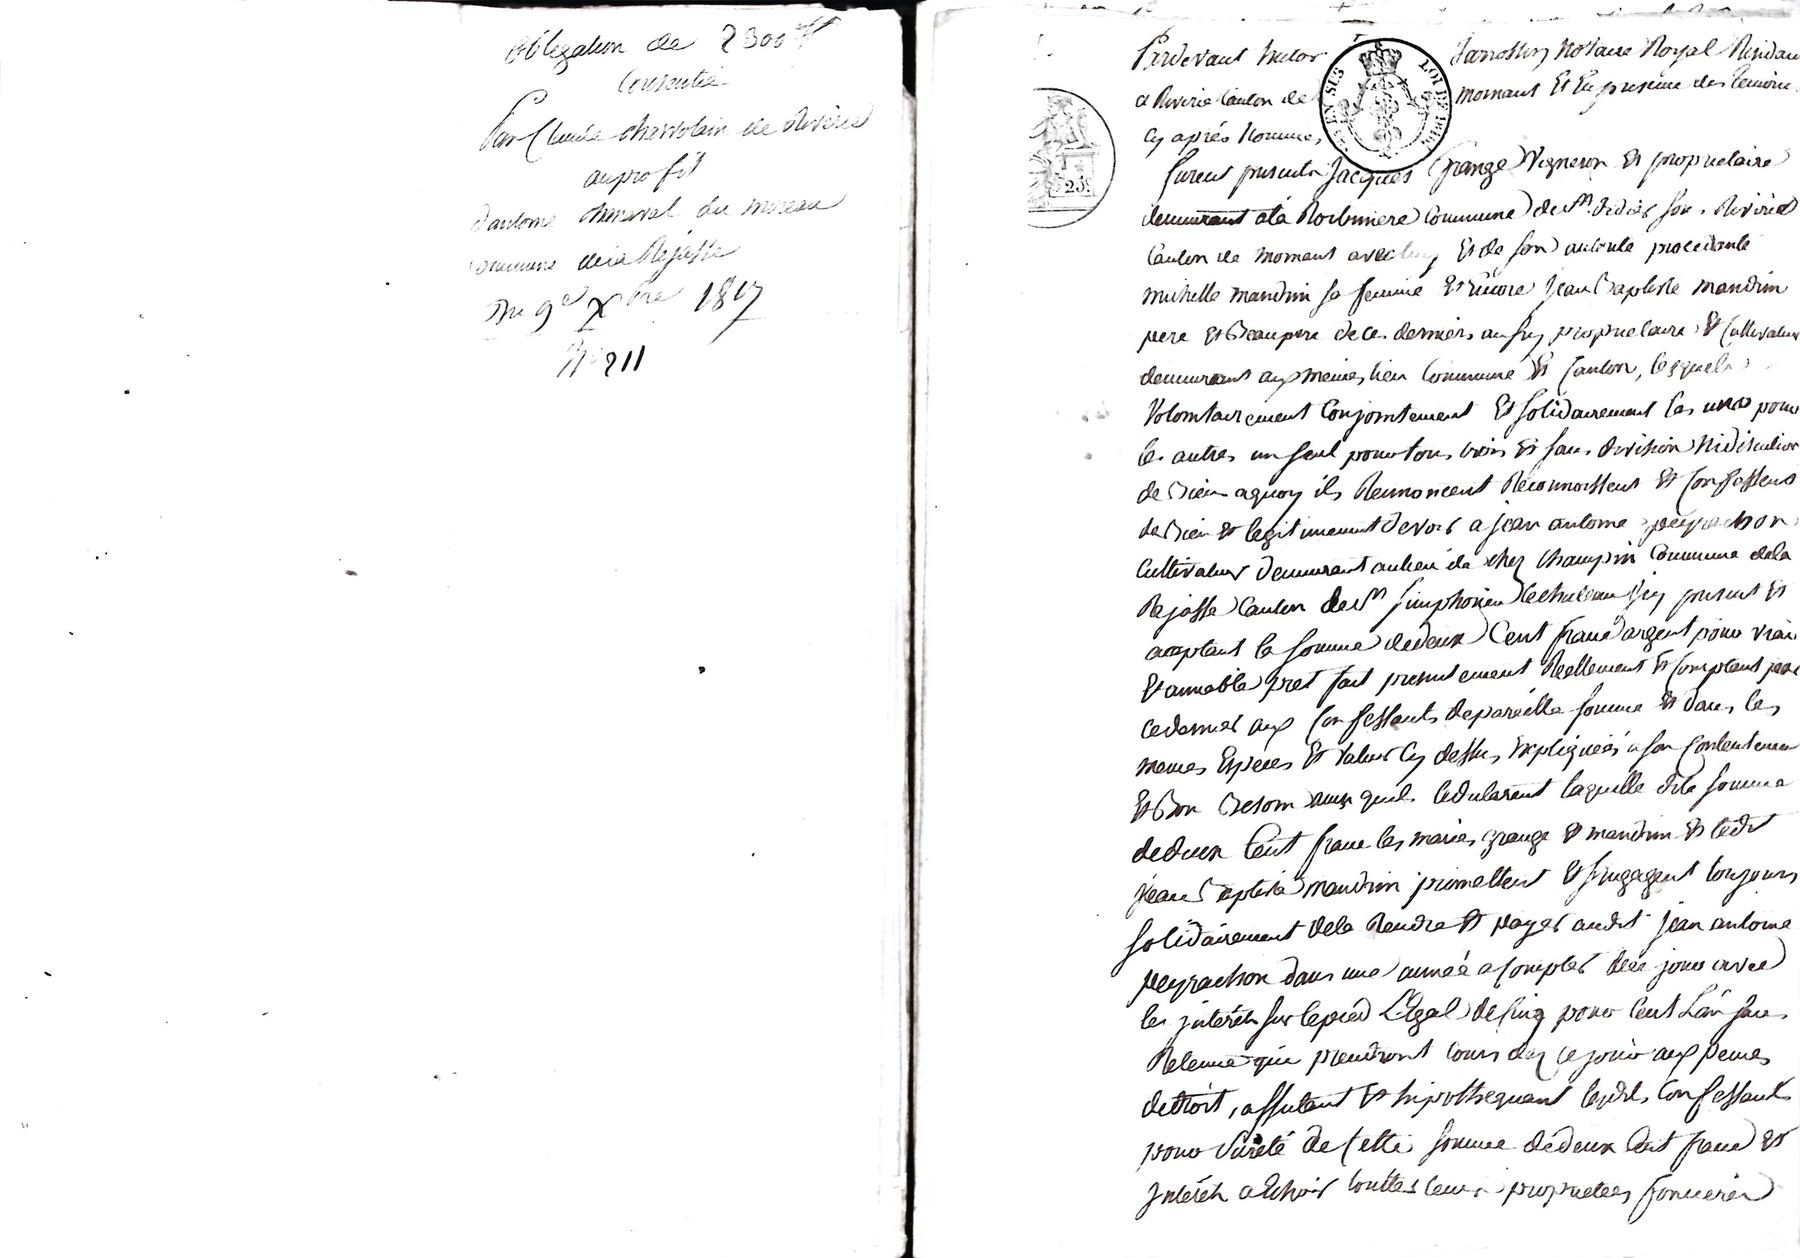 obligation de 2300 ₶
Consentie
Par Claude Charvolain de Riverie
au profit
d'antoine Chenaval du moreau
commune dela Rejasse
Du 9e Xbre 1817
No 211
Pardevant hector Janoffin Notaire Royal Residan
a Riverie Canton de mornant Et En presence des temoins
cy aprés Nommes
furent presents Jacques Grange Vigneron Et proprietaire
demeurant a la Roibuniere Commune de St. didier sous Riverie
Canton de mornant avec luy Et de son autorite procedante
michelle mandrin sa femme Et Encore Jean Baptiste mandrin
pere Et Beaupere de ces derniers aussy proprietaire Et Cultivateur
demeurant aux memes lieu Commune Et Canton, lesquels
Volontairement Conjointement Et Solidairement les uns pour
les autres un seul pour tous, Et sans division Ni discution
de Biens aquoy ils Renoncent Reconnoissent Et Confessent
de Bien Et legitimement devoir a jean antoine peyrachon
Cultivateur demeurant au lieu de chez Champin Commune dela
Rejasse Canton de St simphorien le chateau Icy present Et
acceptant la somme de deux Cent franc argent pour vrai
Et amiable pret fait presentement Reellement Et Comptant par
ce dernier aux Confessants de pareille somme Et dans les
memes Especes Et Valeur Cy dessus Expliquéés a son Contentement
Et Bon Besoin ainsi quils le declarent laquelle dite somme
de deux Cent franc les maries grange Et mandrin Et ledt
jean Baptiste mandrin promettent Et s'engagent toujours
solidairement dela Rendre Et payer audit jean antoine
peyrachon dans une année a Compter de ce jour avec
les jnterêts sur le pied Légal de Cinq pour Cent L'an sans
Retenue qui prendront Cours dez ce jour aux peines
de droit, affectant Et hipothequant lesdts Confessants
pour Sureté de Cette somme de deux Cent franc Et
jnterêts a Echoir touttes leurs proprietees foncieres
25c